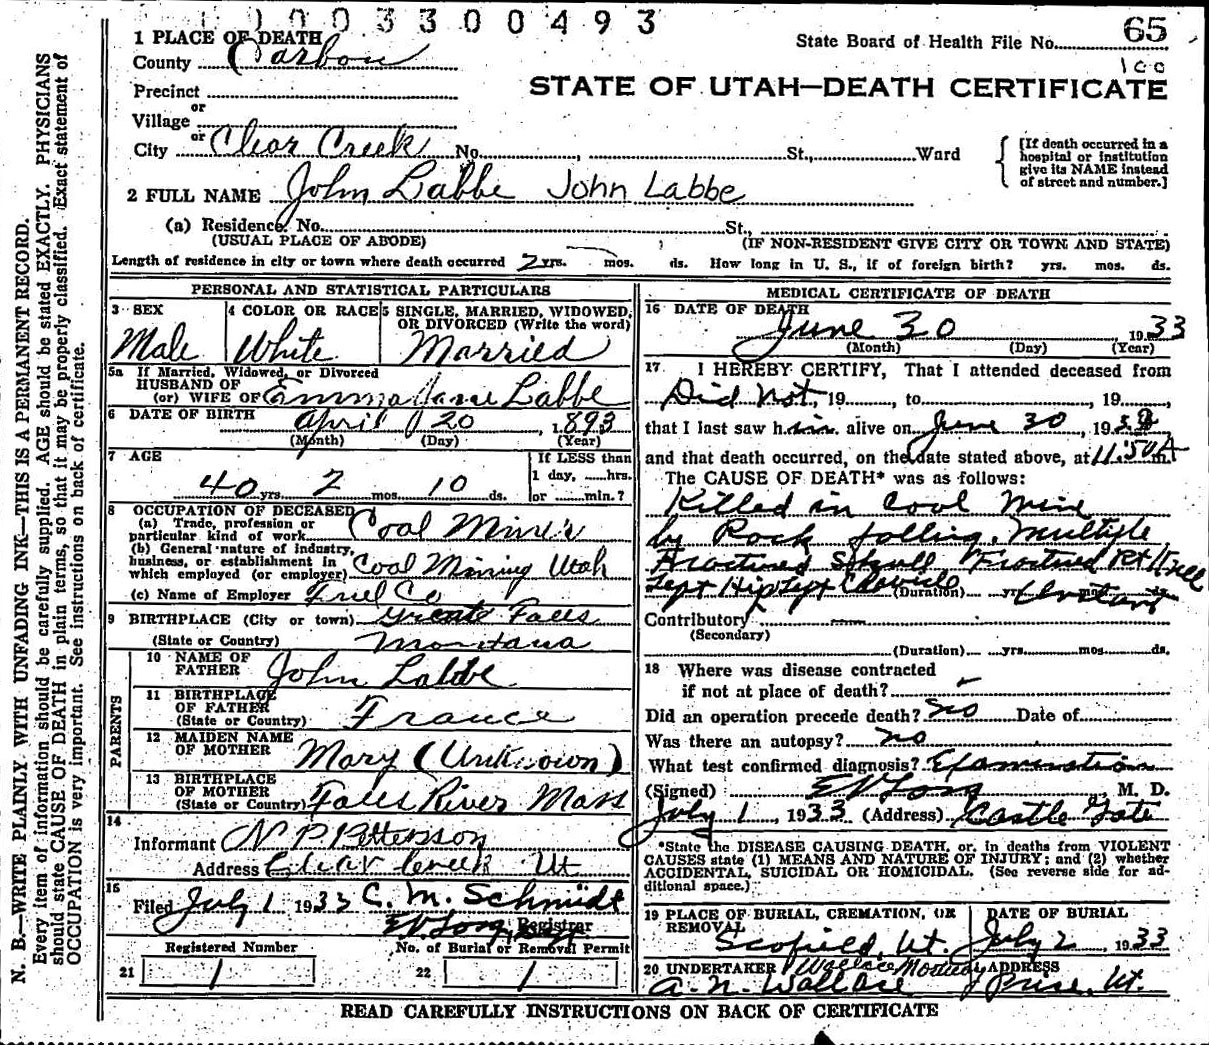 1003300493
1 PLACE OF DEATH
County Carbon
State Board of Health File No. 65
100
Precinct
STATE OF UTAH—DEATH CERTIFICATE
or
Village
or
City Clear Creek No. , St., Ward
[If death occurred in a hospital or institution give its NAME instead of street and number.]
2 FULL NAME John Labbe John Labbe
(a) Residence. No. St.,
(USUAL PLACE OF ABODE) (IF NON-RESIDENT GIVE CITY OR TOWN AND STATE)
Length of residence in city or town where death occurred 2 yrs. mos. ds. How long in U. S., if of foreign birth? yrs. mos. ds.
PERSONAL AND STATISTICAL PARTICULARS
3 SEX
Male
4 COLOR OR RACE
White
5 SINGLE, MARRIED, WIDOWED,
OR DIVORCED (Write the word)
Married
5a If Married, Widowed, or Divorced
HUSBAND OF
(or) WIFE OF Emma Jane Labbe
6 DATE OF BIRTH April 20, 1893
(Month) (Day) (Year)
7 AGE
40 yrs. 2 mos. 10 ds.
If LESS than
1 day, hrs.
or min.?
8 OCCUPATION OF DECEASED
(a) Trade, profession or
particular kind of work Coal Miner
(b) General nature of industry,
business, or establishment in
which employed (or employer) Coal Mining Utah
(c) Name of Employer Fuel Co
9 BIRTHPLACE (City or town) Greate Falls
(State or Country) Montana
PARENTS
10 NAME OF
FATHER John Labbe
11 BIRTHPLACE
OF FATHER
(State or Country) France
12 MAIDEN NAME
OF MOTHER Mary (Unknown)
13 BIRTHPLACE
OF MOTHER
(State or Country) Falls River Mass
14
Informant N P Petterson
Address Clear Creek Ut
15
Filed July 1 1933 C. M. Schmidt
EV Long Registrar
Registered Number No. of Burial or Removal Permit
21 1 22 1
MEDICAL CERTIFICATE OF DEATH
16 DATE OF DEATH
June 30 1933
(Month) (Day) (Year)
17 I HEREBY CERTIFY, That I attended deceased from
Did Not, 19 , to , 19 ,
that I last saw him alive on June 30, 193
and that death occurred, on the date stated above, at 11:50A m.
The CAUSE OF DEATH* was as follows:
Killed in Coal Mine
by Rock falling. Multiple
Fractures Skull, Fractured Rt Knee
Left Hip Left Clavicle (Duration) yrs. mos. ds. Instant
Contributory
(Secondary)
(Duration) yrs. mos. ds.
18 Where was disease contracted
if not at place of death? -
Did an operation precede death? No Date of
Was there an autopsy? no
What test confirmed diagnosis? Examination
(Signed) EV Long, M. D.
July 1, 1933 (Address) Castle Gate
*State the DISEASE CAUSING DEATH, or, in deaths from VIOLENT
CAUSES state (1) MEANS AND NATURE OF INJURY; and (2) whether
ACCIDENTAL, SUICIDAL OR HOMICIDAL. (See reverse side for ad-
ditional space.)
19 PLACE OF BURIAL, CREMATION, OR
REMOVAL
Scofield, Ut.
DATE OF BURIAL
July 2, 1933
20 UNDERTAKER Wallace Mortuary
A. N. Wallace
ADDRESS
Price, Ut.
READ CAREFULLY INSTRUCTIONS ON BACK OF CERTIFICATE
N. B.—WRITE PLAINLY WITH UNFADING INK—THIS IS A PERMANENT RECORD.
Every item of information should be carefully supplied. AGE should be stated EXACTLY. PHYSICIANS
should state CAUSE OF DEATH in plain terms, so that it may be properly classified. Exact statement of
OCCUPATION is very important. See instructions on back of certificate.